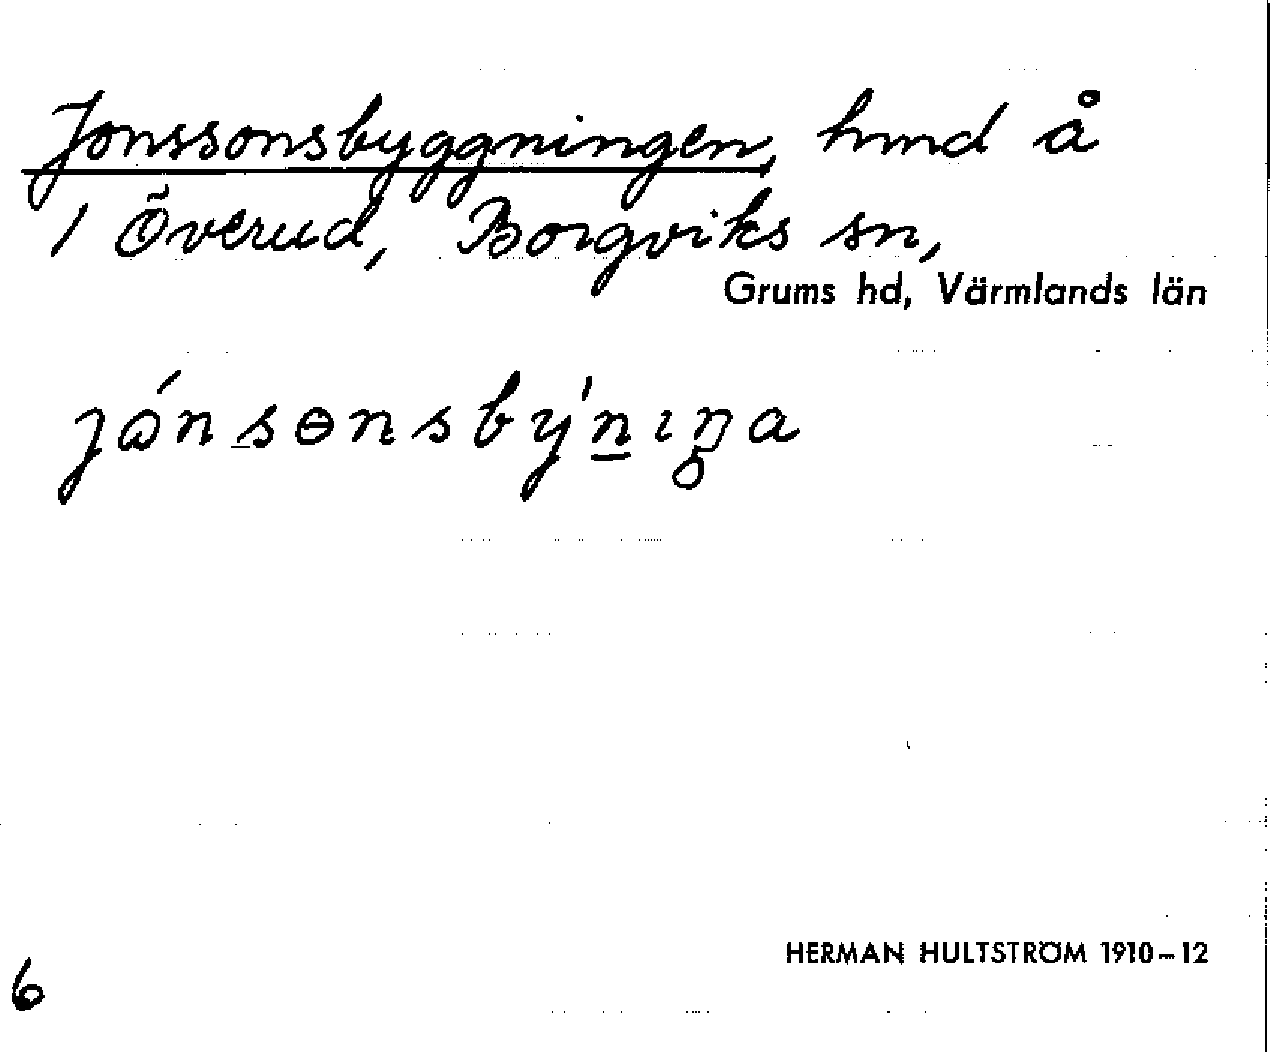 Jonssonsbyggningen, hmd å
1 Överud, Borgviks sn,
Grums hd, Värmlands län
jɷ́nsɵnsbý'nıŋa
HERMAN HULTSTRÖM 1910–12
6